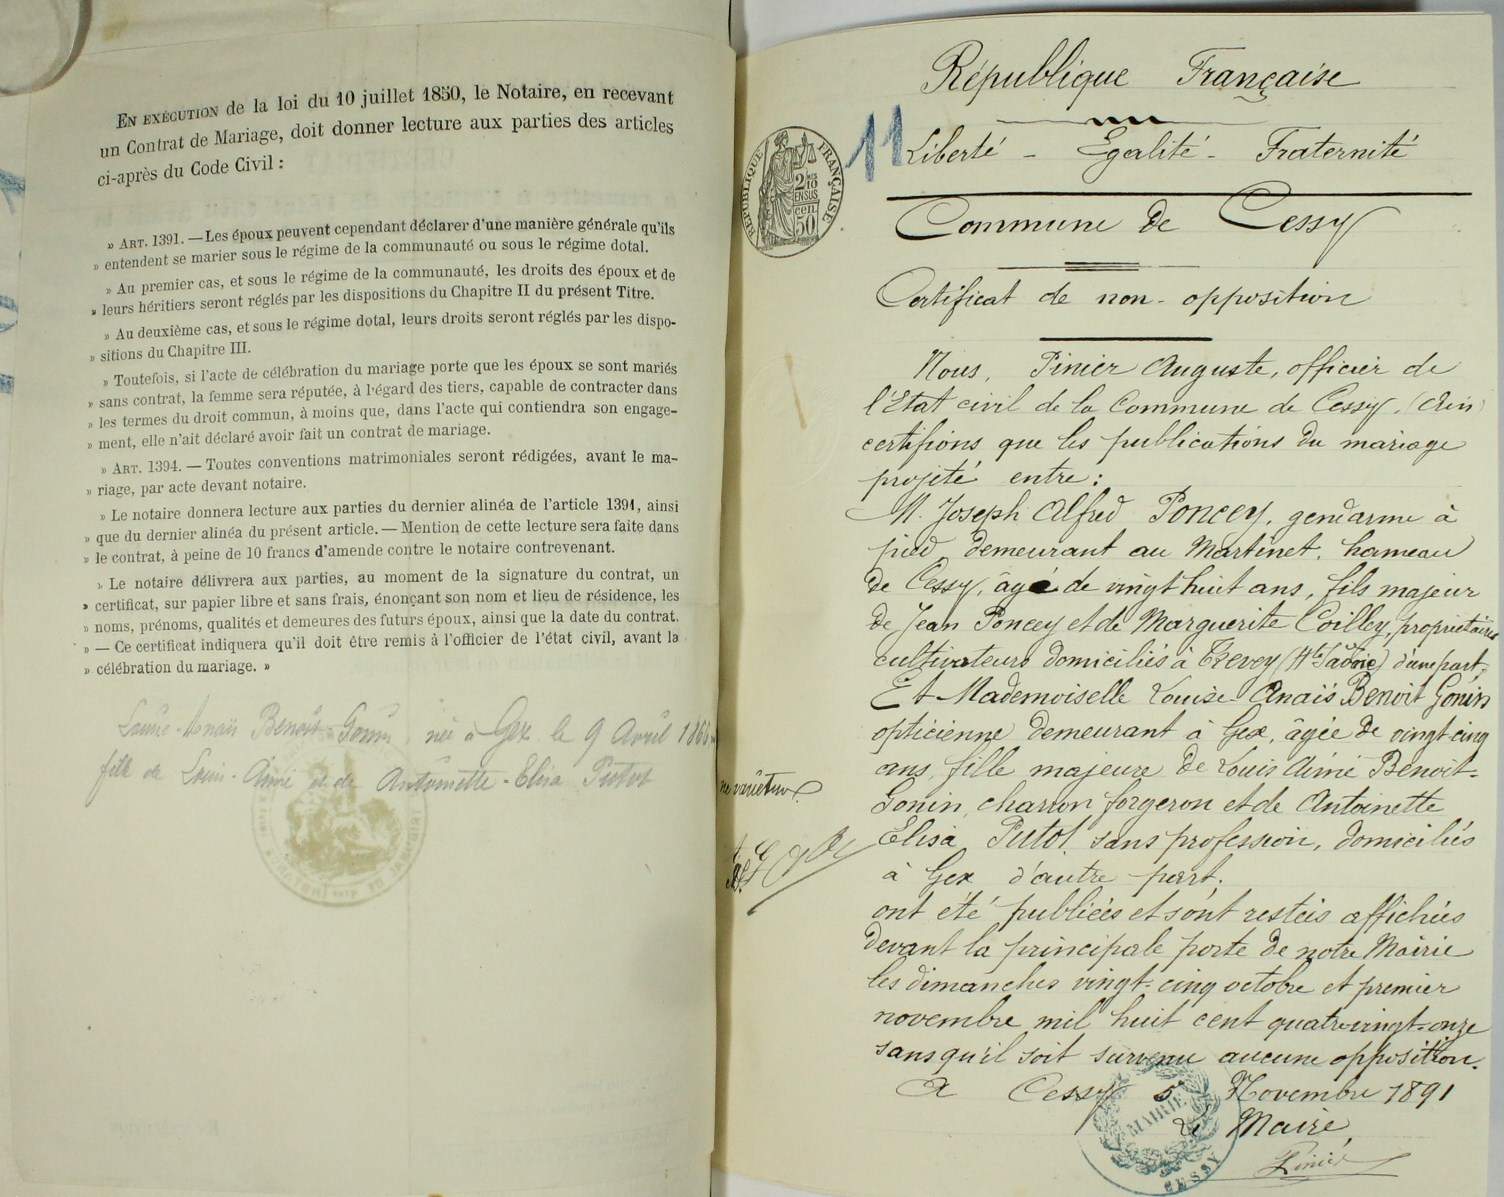 EN EXÉCUTION de la loi du 10 juillet 1850, le Notaire, en recevant
un Contrat de Mariage, doit donner lecture aux parties des articles
ci-après du Code Civil :
» ART. 1391. — Les époux peuvent cependant déclarer d'une manière générale qu'ils
» entendent se marier sous le régime de la communauté ou sous le régime dotal.
» Au premier cas, et sous le régime de la communauté, les droits des époux et de
» leurs héritiers seront réglés par les dispositions du Chapitre II du présent Titre.
» Au deuxième cas, et sous le régime dotal, leurs droits seront réglés par les dispo-
» sitions du Chapitre III.
» Toutefois, si l'acte de célébration du mariage porte que les époux se sont mariés
» sans contrat, la femme sera réputée, à l'égard des tiers, capable de contracter dans
» les termes du droit commun, à moins que, dans l'acte qui contiendra son engage-
» ment, elle n'ait déclaré avoir fait un contrat de mariage.
» ART. 1394. — Toutes conventions matrimoniales seront rédigées, avant le ma-
» riage, par acte devant notaire.
» Le notaire donnera lecture aux parties du dernier alinéa de l'article 1391, ainsi
» que du dernier alinéa du présent article. — Mention de cette lecture sera faite dans
» le contrat, à peine de 10 francs d'amende contre le notaire contrevenant.
» Le notaire délivrera aux parties, au moment de la signature du contrat, un
» certificat, sur papier libre et sans frais, énonçant son nom et lieu de résidence, les
» noms, prénoms, qualités et demeures des futurs époux, ainsi que la date du contrat.
» — Ce certificat indiquera qu'il doit être remis à l'officier de l'état civil, avant la
» célébration du mariage. »
Louise-Anaïs Benoit-Gonin née à Gex le 9 Avril 1866
fille de Louis-Aimé et de Antoinette-Elisa Putot
République Française
11
Liberté - Egalité - Fraternité
RÉPUBLIQUE FRANÇAISE
2/10 EN SUS
50 cen
Commune de Cessy
Certificat de non-opposition
Nous, Pinier Auguste, officier de
l'Etat civil de la Commune de Cessy, (Ain)
certifions que les publications du mariage
projeté entre :
M. Joseph Alfred Poncey, gendarme à
pied, demeurant au Martinet, hameau
de Cessy, âgé de vingt huit ans, fils majeur
de Jean Poncey et de Marguerite Coilley, propriétaires
cultivateurs domiciliés à (Hte Savoie) d'une part,
Et Mademoiselle Louise Anaïs Benoit Gonin
opticienne demeurant à Gex, âgée de vingt-cinq
ans, fille majeure de Louis Aimé Benoit-
Gonin, charron forgeron et de Antoinette
Elisa Putot sans profession, domiciliés
à Gex d'autre part,
ont été publiées et sont restées affichées
devant la principale porte de notre Mairie
les dimanches vingt-cinq octobre et premier
novembre mil huit cent quatre-vingt-onze
sans qu'il soit survenu aucune opposition.
A Cessy 5 Novembre 1891
Le Maire,
Pinier
MAIRIE
CESSY
ne varietur